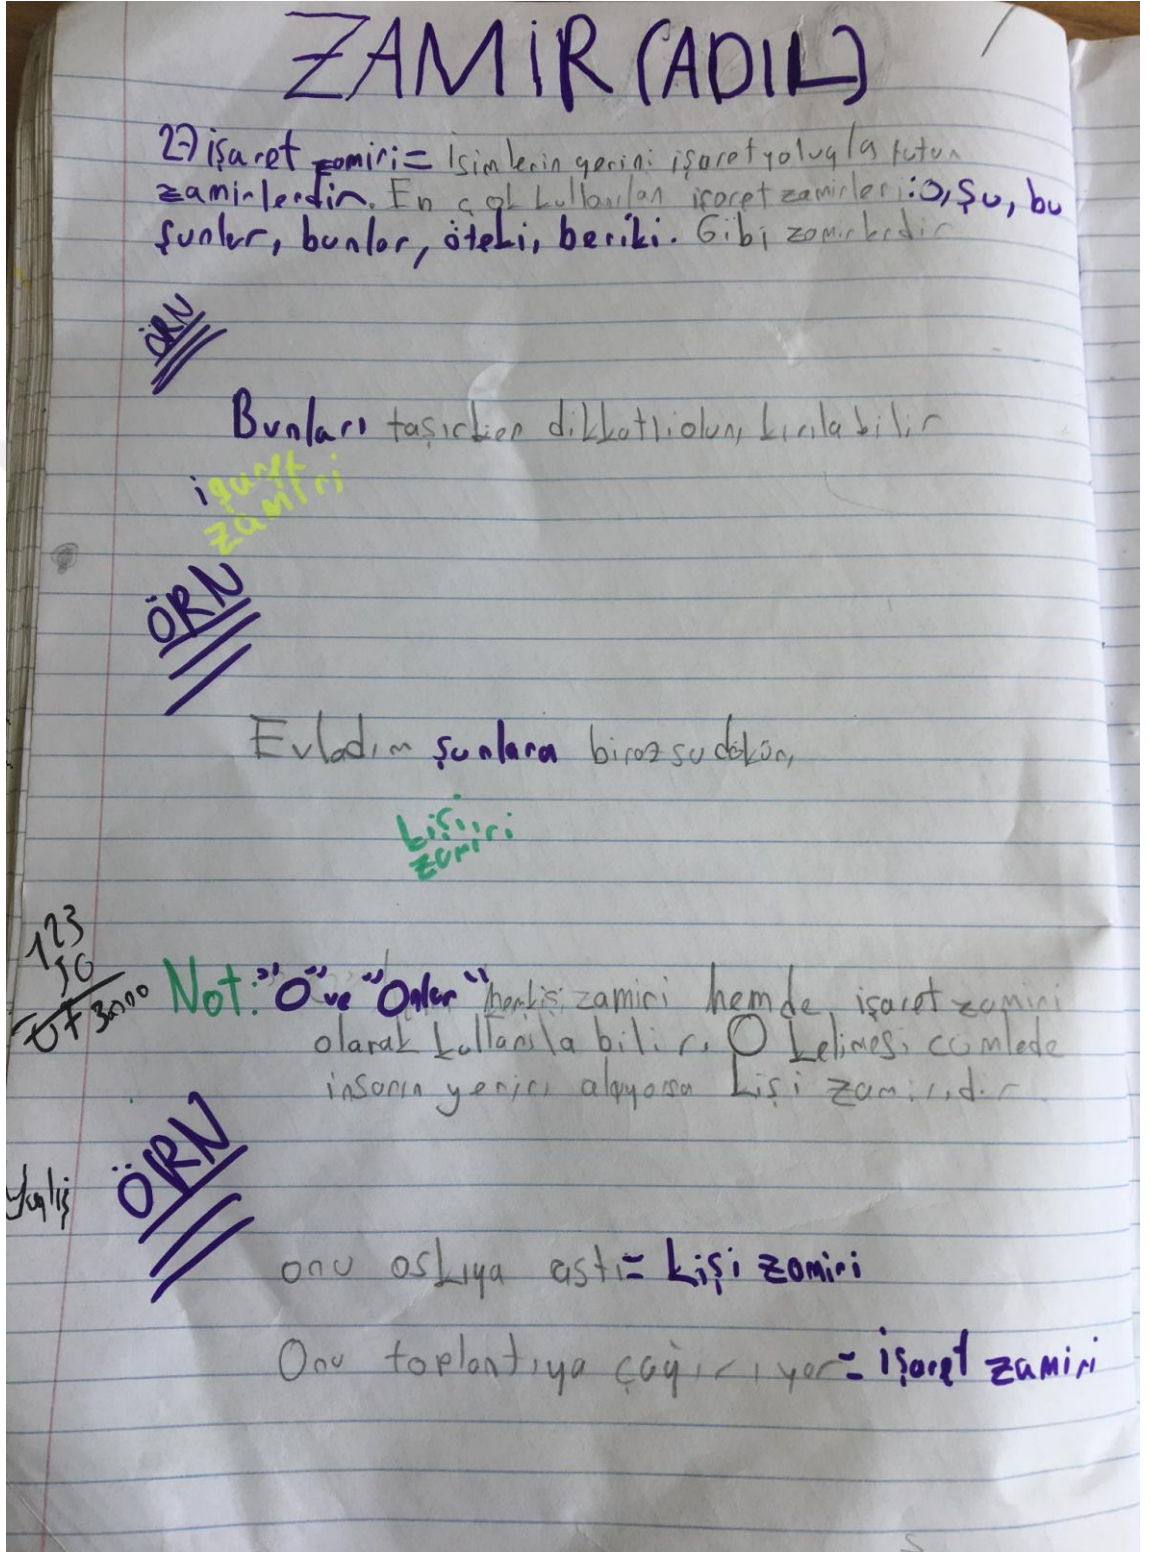 ZAMİR (ADIL)
2-) işaret zamiri = İsimlerin yerini işaret yoluyla tutan
zamirlerdir. En çok kullanılan işaret zamirleri: o, şu, bu
şunlar, bunlar, öteki, beriki. Gibi zamirlerdir
ÖRN
Bunları taşırken dikkatli olun, kırıla bilir
işaret
zamiri
ÖRN
Evladım şunlara biraz su dökün,
kişi
zamiri
123
50
Not: "O" ve "Onlar" hem kişi zamiri hemde işaret zamiri
olarak kullanıla bilir. O kelimesi cümlede
insanın yerini alıyorsa kişi zamiridir.
ÖRN
Yanlış
onu askıya astı = kişi zamiri
Onu toplantıya çağırıyor = işaret zamiri